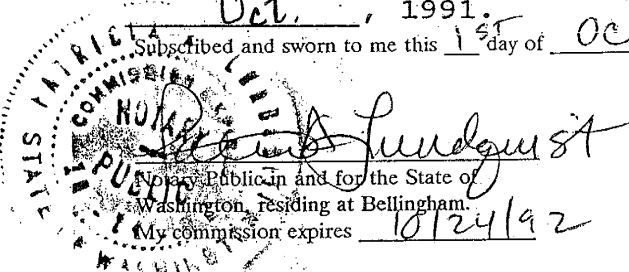 Oct. , 1991.
Subscribed and sworn to me this 1ST day of OC
Lundquist
Notary Public in and for the State of
Washington, residing at Bellingham.
My commission expires 10/24/92
PATRICIA A. LUNDQUIST
STATE
COMMISSION
NOTARY
PUBLIC